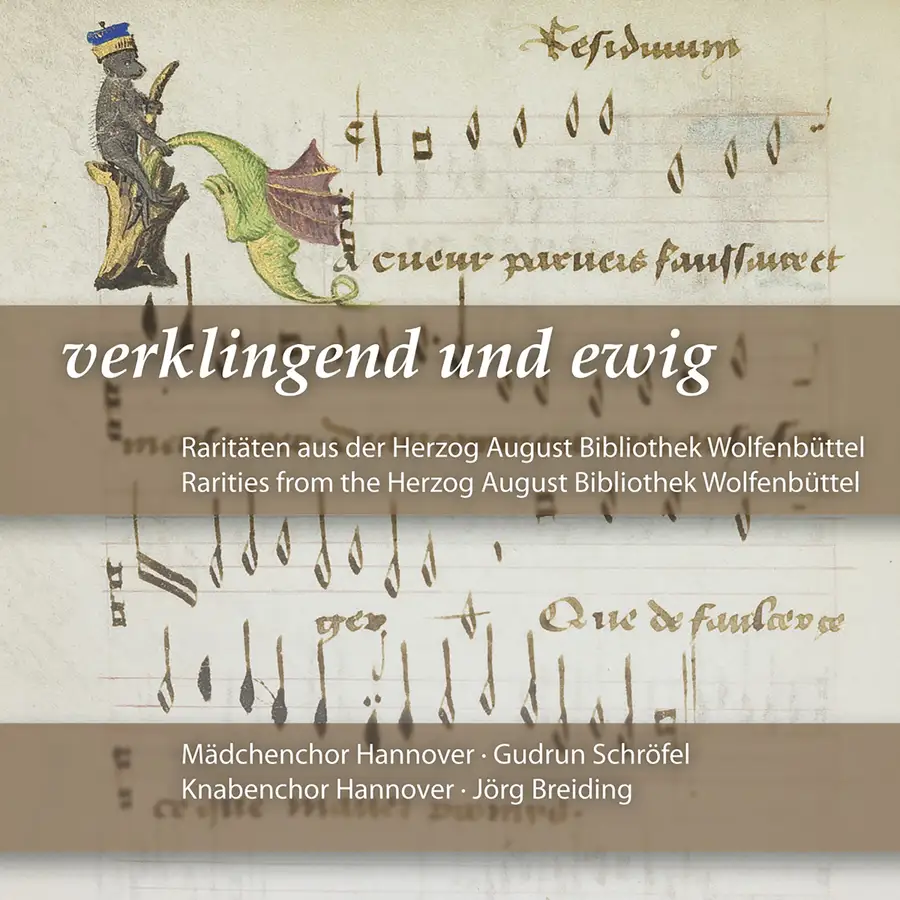 Residuum
cueur parvers faulssaire et
verklingend und ewig
Raritäten aus der Herzog August Bibliothek Wolfenbüttel
Rarities from the Herzog August Bibliothek Wolfenbüttel
ger
Que de
Mädchenchor Hannover · Gudrun Schröfel
Knabenchor Hannover · Jörg Breiding